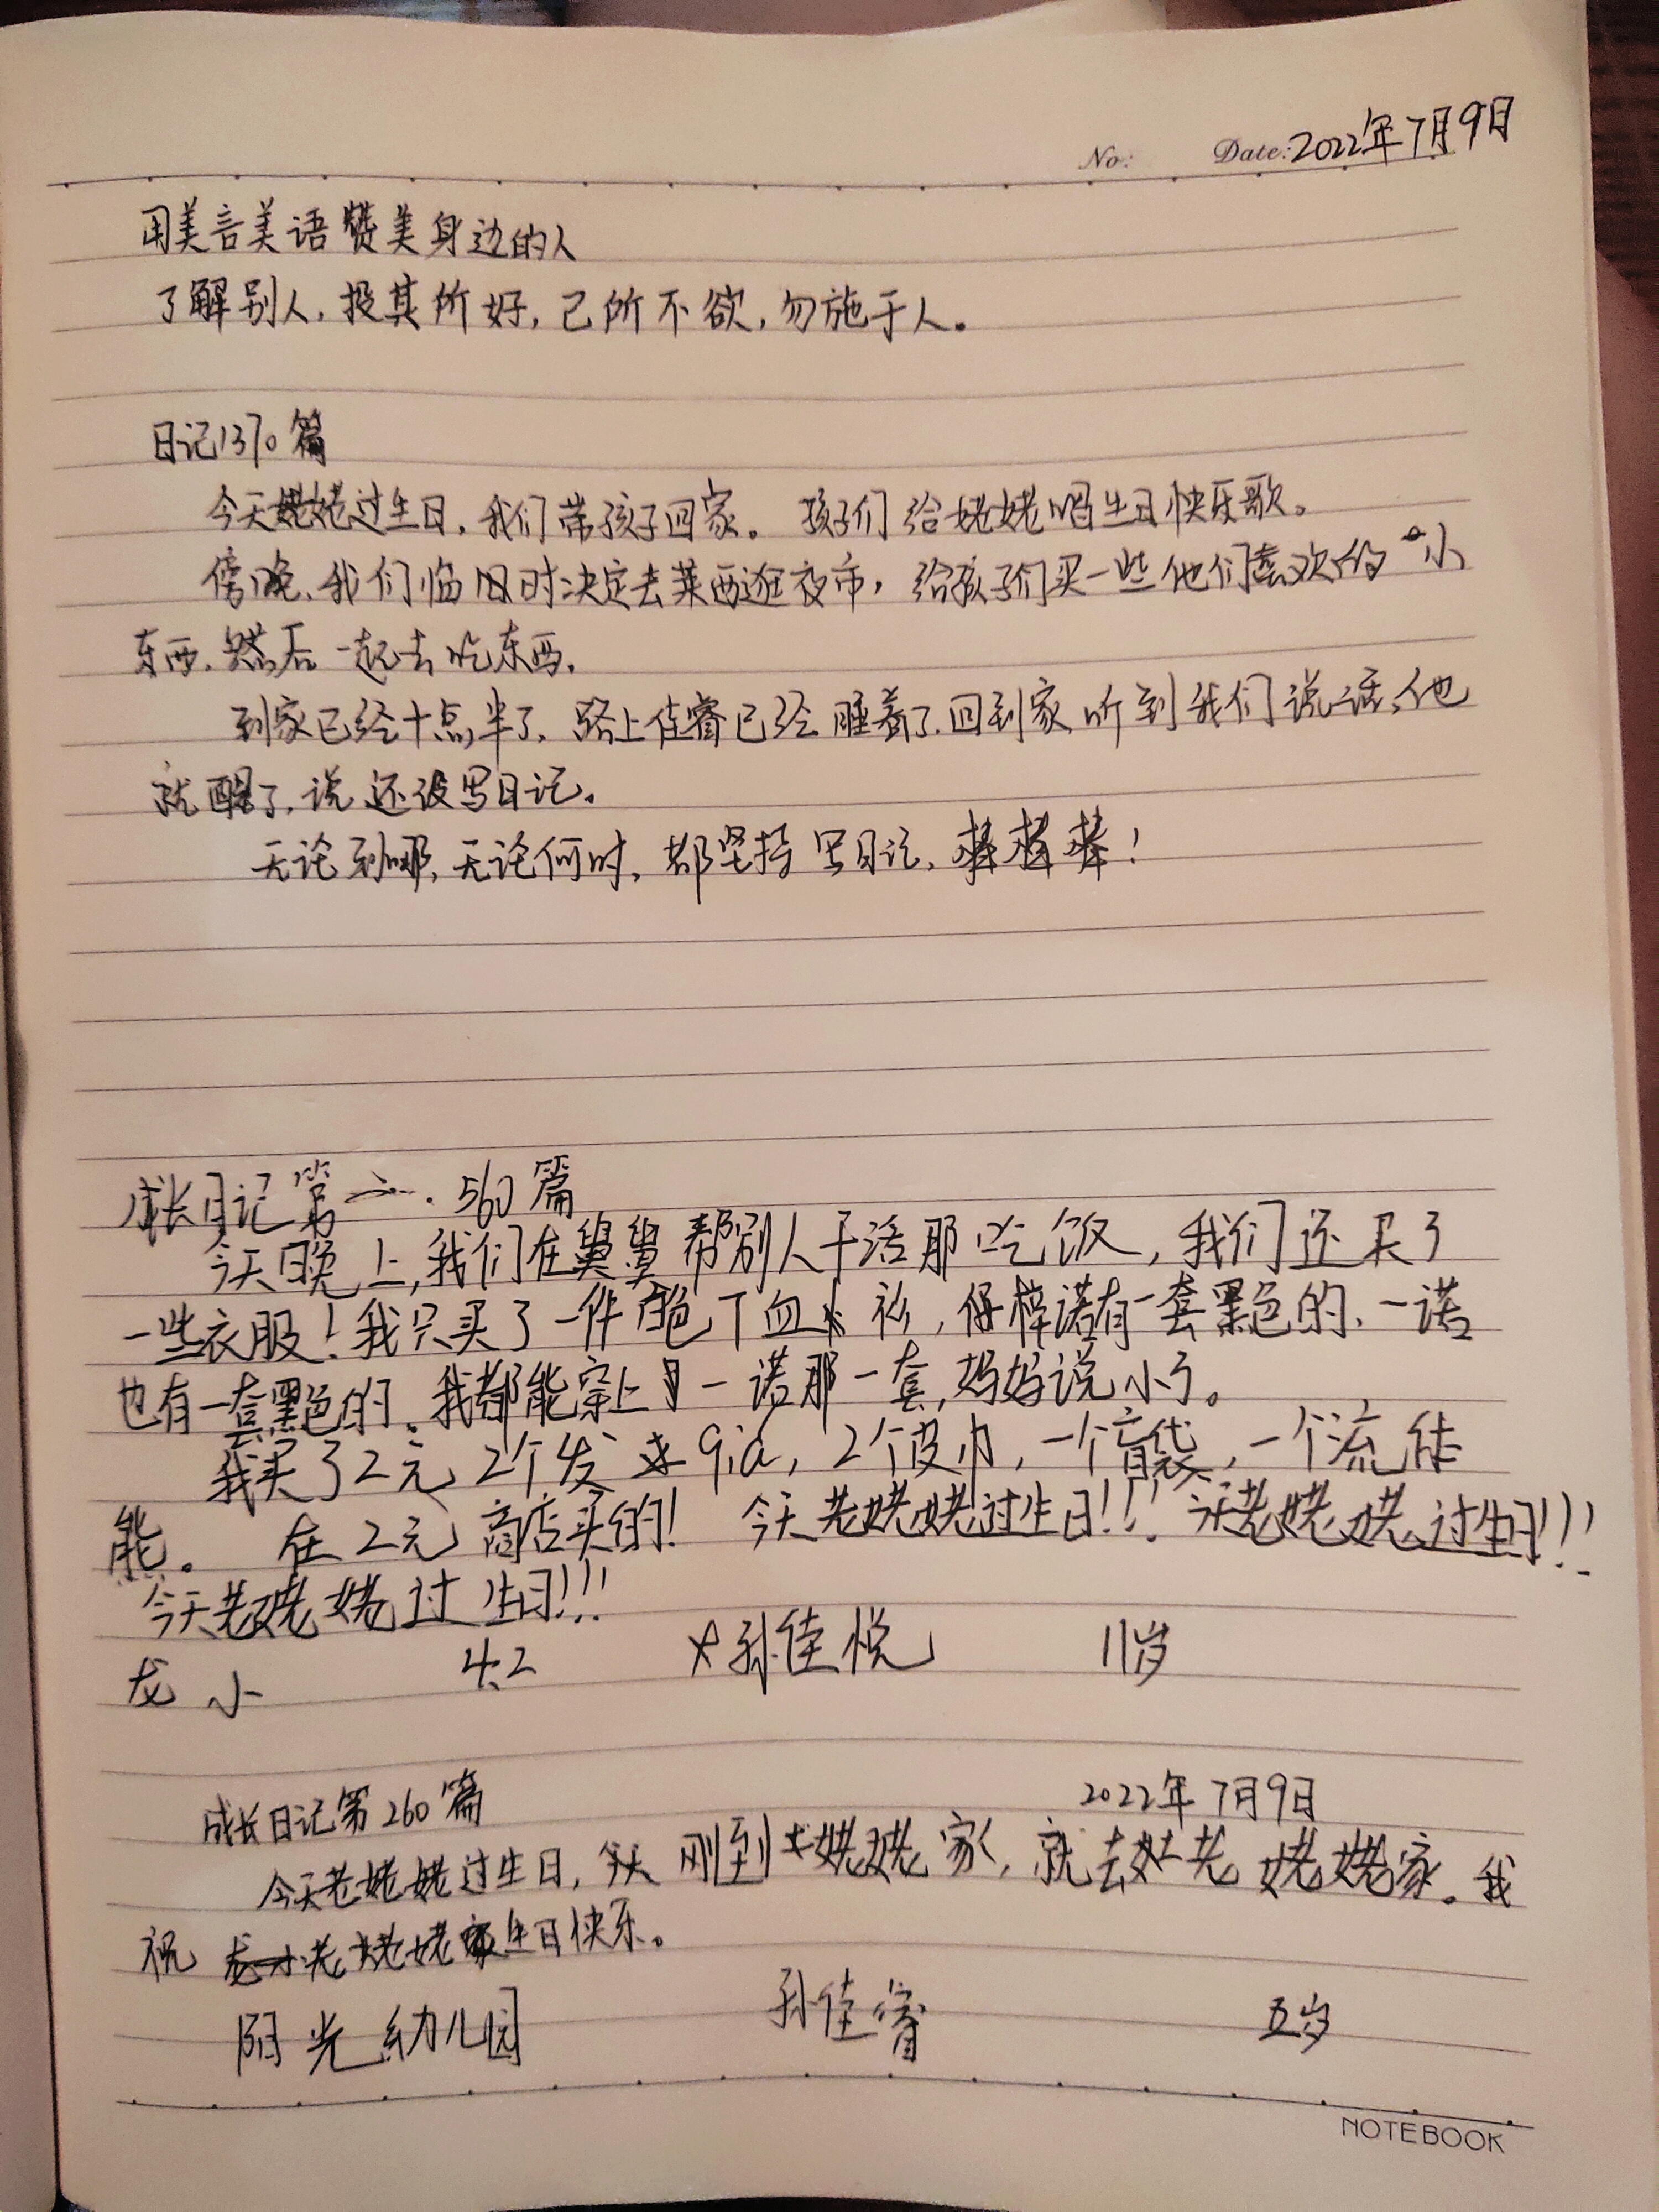 No: Date: 2022年7月9日
用美言美语赞美身边的人
了解别人,投其所好,己所不欲,勿施于人。
日记1370篇
今天姥姥过生日,我们带孩子回家。孩子们给姥姥唱生日快乐歌。
傍晚,我们临时决定去莱西逛夜市,给孩子们买一些他们喜欢的小
东西,然后一起去吃东西。
到家已经十点半了,路上佳睿已经睡着了,回到家听到我们说话,他
就醒了,说还没写日记。
无论到哪,无论何时,都坚持写日记,棒棒棒!
成长日记第 560篇
今天晚上,我们在舅舅帮别人干活那吃饭,我们还买了
一些衣服!我只买了一件 色丁血 衫,梓诺有一套黑色的,一诺
也有一套黑色的。我都能穿上一诺那一套,妈妈说小了。
我买了2元2个发qia,2个皮巾,一个 袋,一个流体
熊。 在2元商店买的! 今天老姥姥过生日!!! 今天老姥姥过生日!!!
今天老姥姥过生日!!!
龙小 4.2 孙佳悦 11岁
成长日记第260篇 2022年7月9日
今天老姥姥过生日,今天刚到姥姥家,就去老姥姥家。我
祝老姥姥生日快乐。
阳光幼儿园 孙佳睿 五岁
NOTEBOOK